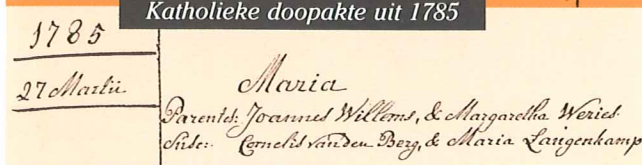 Katholieke doopakte uit 1785
1785
27 Martii
Maria
Parentes: Joannes Willems, & Margaretha Weries.
Susc: Cornelis van den Berg, & Maria Langenkamp